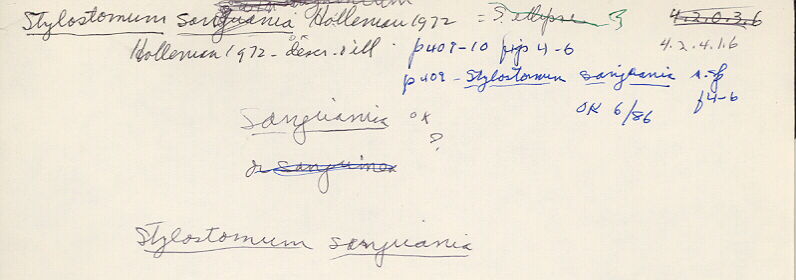 Stylostomum sanguania Holleman 1972 = S. ellipse 4.2.0.3.6
Holleman 1972 - descr. & ill. OK p 409-10 figs 4-6 4.2.4.1.6
p 409 - Stylostomum sanguania n. sp f4-6
OK 6/86
sanguania OK
?
Stylostomum sanguania